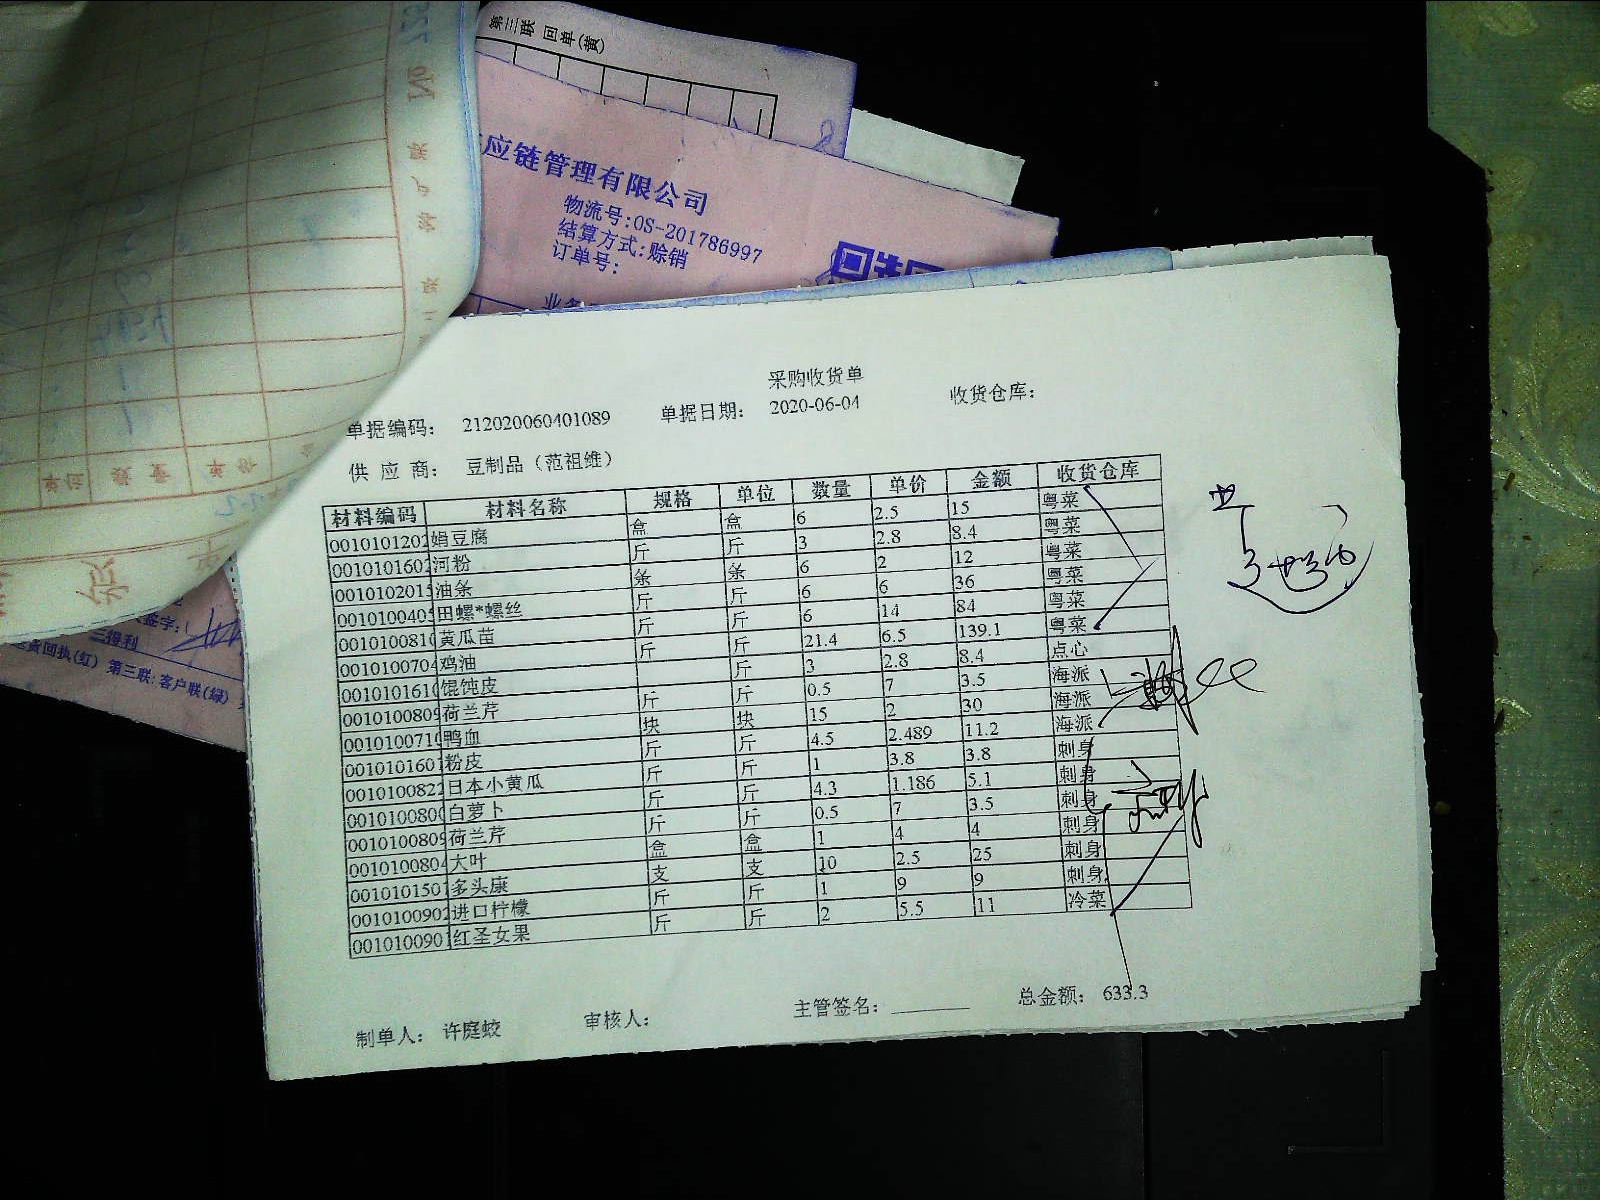 第三联 回单(黄)
应链管理有限公司
物流号:OS-201786997
结算方式:赊销
订单号:
采购收货单
单据编码: 212020060401089 单据日期: 2020-06-04 收货仓库:
供 应 商: 豆制品 (范祖维)
材料编码 材料名称 规格 单位 数量 单价 金额 收货仓库
0010101202 娟豆腐 盒 盒 6 2.5 15 粤菜
0010101602 河粉 斤 斤 3 2.8 8.4 粤菜
0010102015 油条 条 条 6 2 12 粤菜
0010100405 田螺*螺丝 斤 斤 6 6 36 粤菜
0010100810 黄瓜苗 斤 斤 6 14 84 粤菜
0010100704 鸡油 斤 斤 21.4 6.5 139.1 粤菜
0010101610 馄饨皮 斤 3 2.8 8.4 点心
0010100809 荷兰芹 斤 斤 0.5 7 3.5 海派
0010100710 鸭血 块 块 15 2 30 海派
0010101601 粉皮 斤 斤 4.5 2.489 11.2 海派
0010100822 日本小黄瓜 斤 斤 1 3.8 3.8 刺身
0010100800 白萝卜 斤 斤 4.3 1.186 5.1 刺身
0010100809 荷兰芹 斤 斤 0.5 7 3.5 刺身
0010100804 大叶 盒 盒 1 4 4 刺身
0010101501 多头康 支 支 10 2.5 25 刺身
0010100902 进口柠檬 斤 斤 1 9 9 刺身
0010100901 红圣女果 斤 斤 2 5.5 11 冷菜
制单人: 许庭蛟 审核人: 主管签名: 总金额: 633.3
签字:
三得利
回执(红) 第三联:客户联(绿)